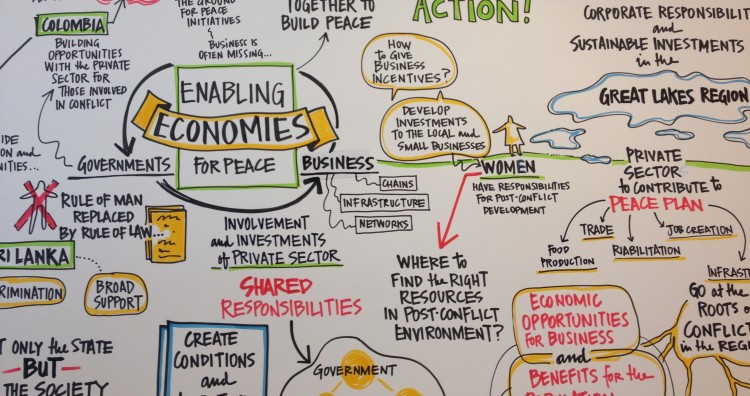 THE GROUND
FOR PEACE
INITIATIVES
&
BUSINESS IS
OFTEN MISSING...
TOGETHER TO
BUILD PEACE
ACTION!
COLOMBIA
BUILDING
OPPORTUNITIES
WITH THE PRIVATE
SECTOR FOR
THOSE INVOLVED
IN CONFLICT
ENABLING
ECONOMIES
FOR PEACE
GOVERNMENTS
BUSINESS
CHAINS
INFRASTRUCTURE
NETWORKS
HOW
to GIVE
BUSINESS
INCENTIVES?
DEVELOP
INVESTMENTS
TO THE LOCAL and
SMALL BUSINESSES
WOMEN
HAVE RESPONSIBILITIES
FOR POST-CONFLICT
DEVELOPMENT
WHERE to
FIND the RIGHT
RESOURCES
IN POST-CONFLICT
ENVIRONMENT?
CORPORATE RESPONSIBILIT
and
SUSTAINABLE INVESTMENTS
in the
GREAT LAKES REGION
PRIVATE
SECTOR
to CONTRIBUTE to
PEACE PLAN
TRADE
JOB CREATION
FOOD
PRODUCTION
RIABILITATION
INFRASTR
GO at the
ROOTS of
CONFLIC
in the REGI
IDE
ON and
NITIES...
RULE OF MAN
REPLACED
BY RULE OF LAW...
RI LANKA
RIMINATION
BROAD
SUPPORT
T ONLY the STATE
- BUT -
THE SOCIETY
INVOLVEMENT
and INVESTMENTS
of PRIVATE SECTOR
SHARED
RESPONSIBILITIES
CREATE
CONDITIONS
and
GOVERNMENT
ECONOMIC
OPPORTUNITIES
FOR BUSINESS
and
BENEFITS for the